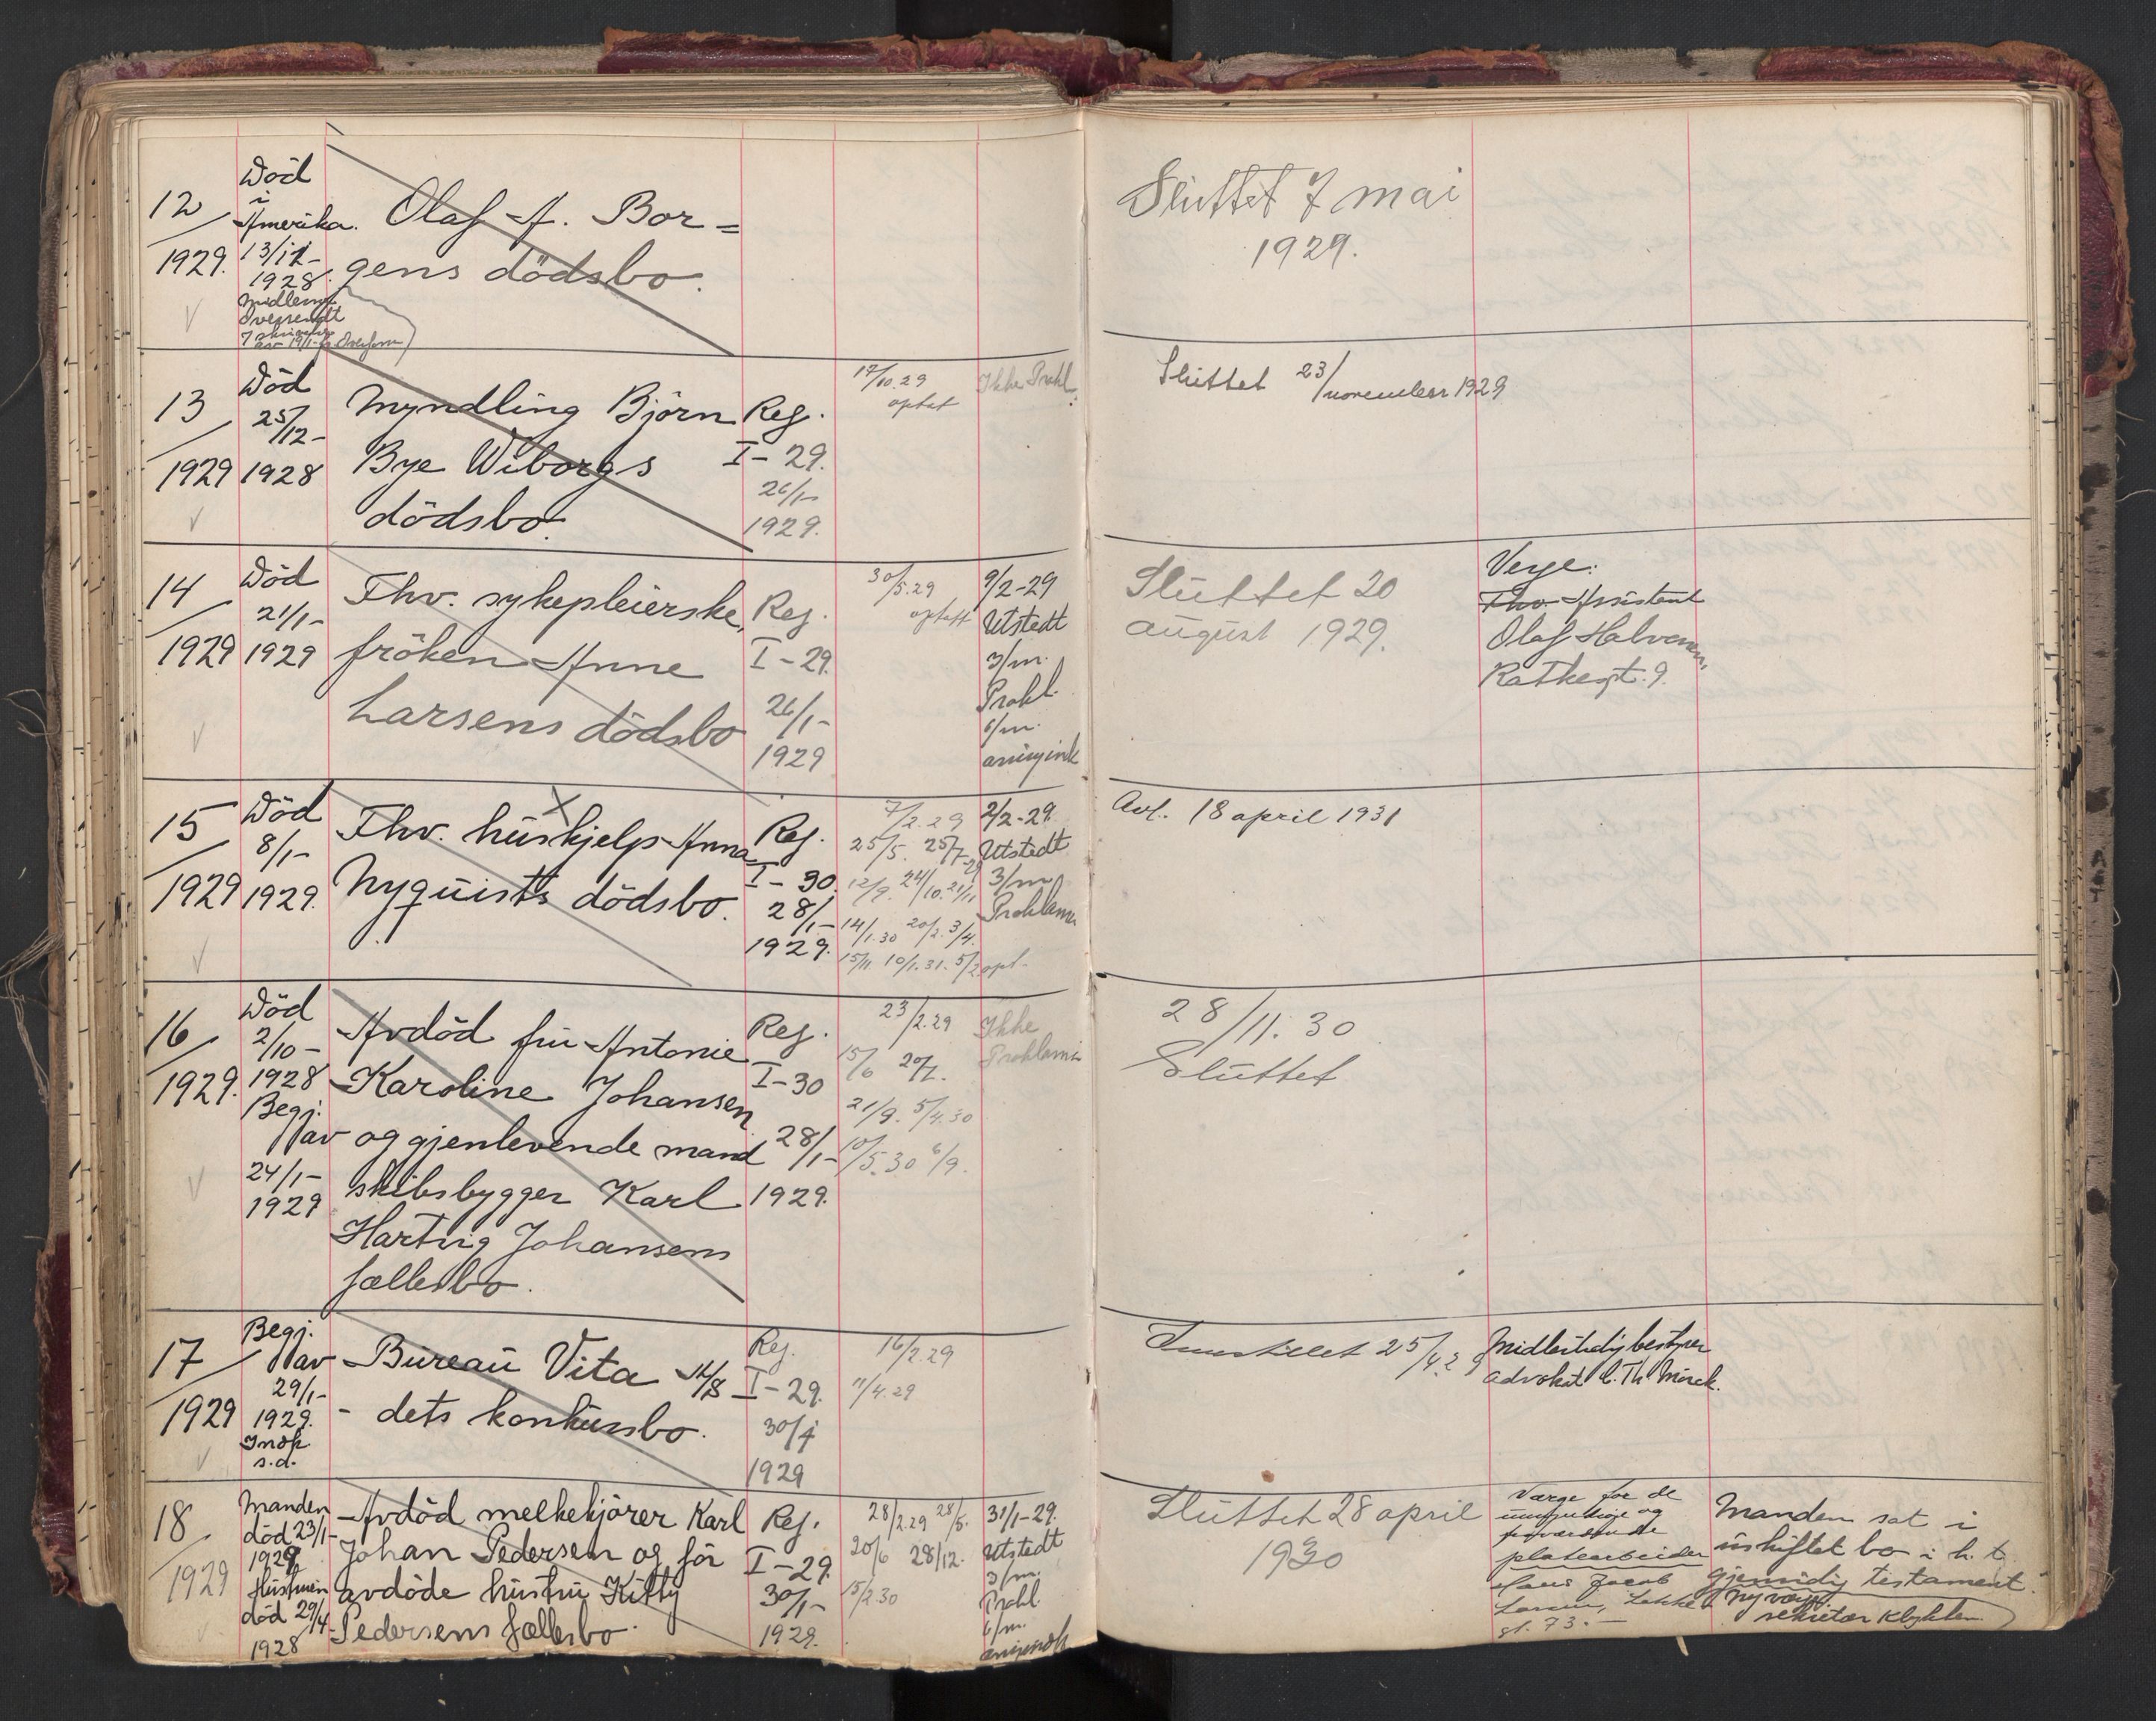 12/1929.
Död
i
Amerika.
13/12-
1928.
Midlerne
Oversendt
Olaf A. Bor=
gens dödsbo.
Sluttet 7 mai
1929.
13/1929
Död
25/12-
1928
Myndling Björn
Bye Wiborgs
dödsbo.
Reg.
I-29.
26/1-
1929.
17/10.29
optat
Ikke Prokl.
Sluttet 23/november 1929
14/1929
Död
21/1-
1929
Fhv. sykepleierske,
fröken Anne
Larsens dödsbo
Reg.
I-29.
26/1-
1929
30/5.29
9/2-29
Utstedt
3/m.
Prokl.
6/m.
Sluttet 20
august 1929.
Verge:
Fhv. Assistent
Olaf Halvorsen,
Ratkesgt. 9.
15/1929
Död
8/1-
1929.
Fhv. hüshjelp Anna
Nyquists dödsbo.
Reg.
I-30.
28/1-
1929.
7/2.29
25/5. 25/7-29
12/9. 24/10. 21/11
14/1.30 20/2. 3/4.
15/11. 10/1.31. 5/2 opt.
2/2-29.
Utstedt
3/m
Proklama
Avl. 18 april 1931
16/1929.
Död
2/10-
1928
Begj.
av
24/1-
1929
Avdöd frü Antonie
Karoline Johansen
og gjenlevende mand
skibsbygger Karl
Hartvig Johansens
fællesbo.
Reg.
I-30
28/1-
1929.
23/2.29
15/6 20/7.
21/9. 5/4.30
10/5.30 6/9.
Ikke
Proklama
28/11.30
Sluttet
17/1929
Begj.
av
29/1-
1929.
Indk.
s.d.
Büreaü Vita A/S
- dets konkürsbo.
Reg.
I-29.
30/1
1929
16/2.29
11/4.29
Innstillet 25/4 29
Midlertidig bestyrer
advokat C. Th.
18/1929
Manden
död 23/1-
1929
Hüstruen
död 29/4-
1928
Avdöd melkekjörer Karl
Johan Pedersen og för
avdöde hüstrü Kitty
Pedersens fællesbo.
Reg.
I-29.
30/1-
1929.
28/2.29 28/5.
20/6 28/12.
15/2.30
31/1-29.
Utstedt
3/m.
Prokl.
6/m.
Sluttet 28 april
1930
Værge for de
umyndige og
fraværende
platearbeider
Hans Jacob
Larsen, Lakke
gt. 73.-
Manden sat i
üskiftet bo i h. t.
gjensidig testament.
Ny værge:
sekretær